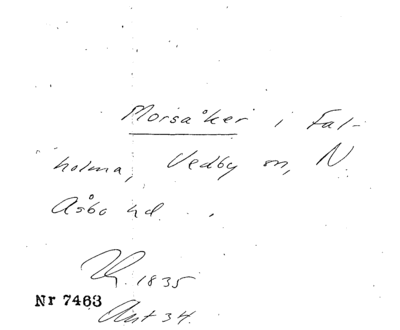 Morsåker i Fal-
holma, Vedby sn, N
Åsbo hd.
1835
Nr 7463
Ant 34.